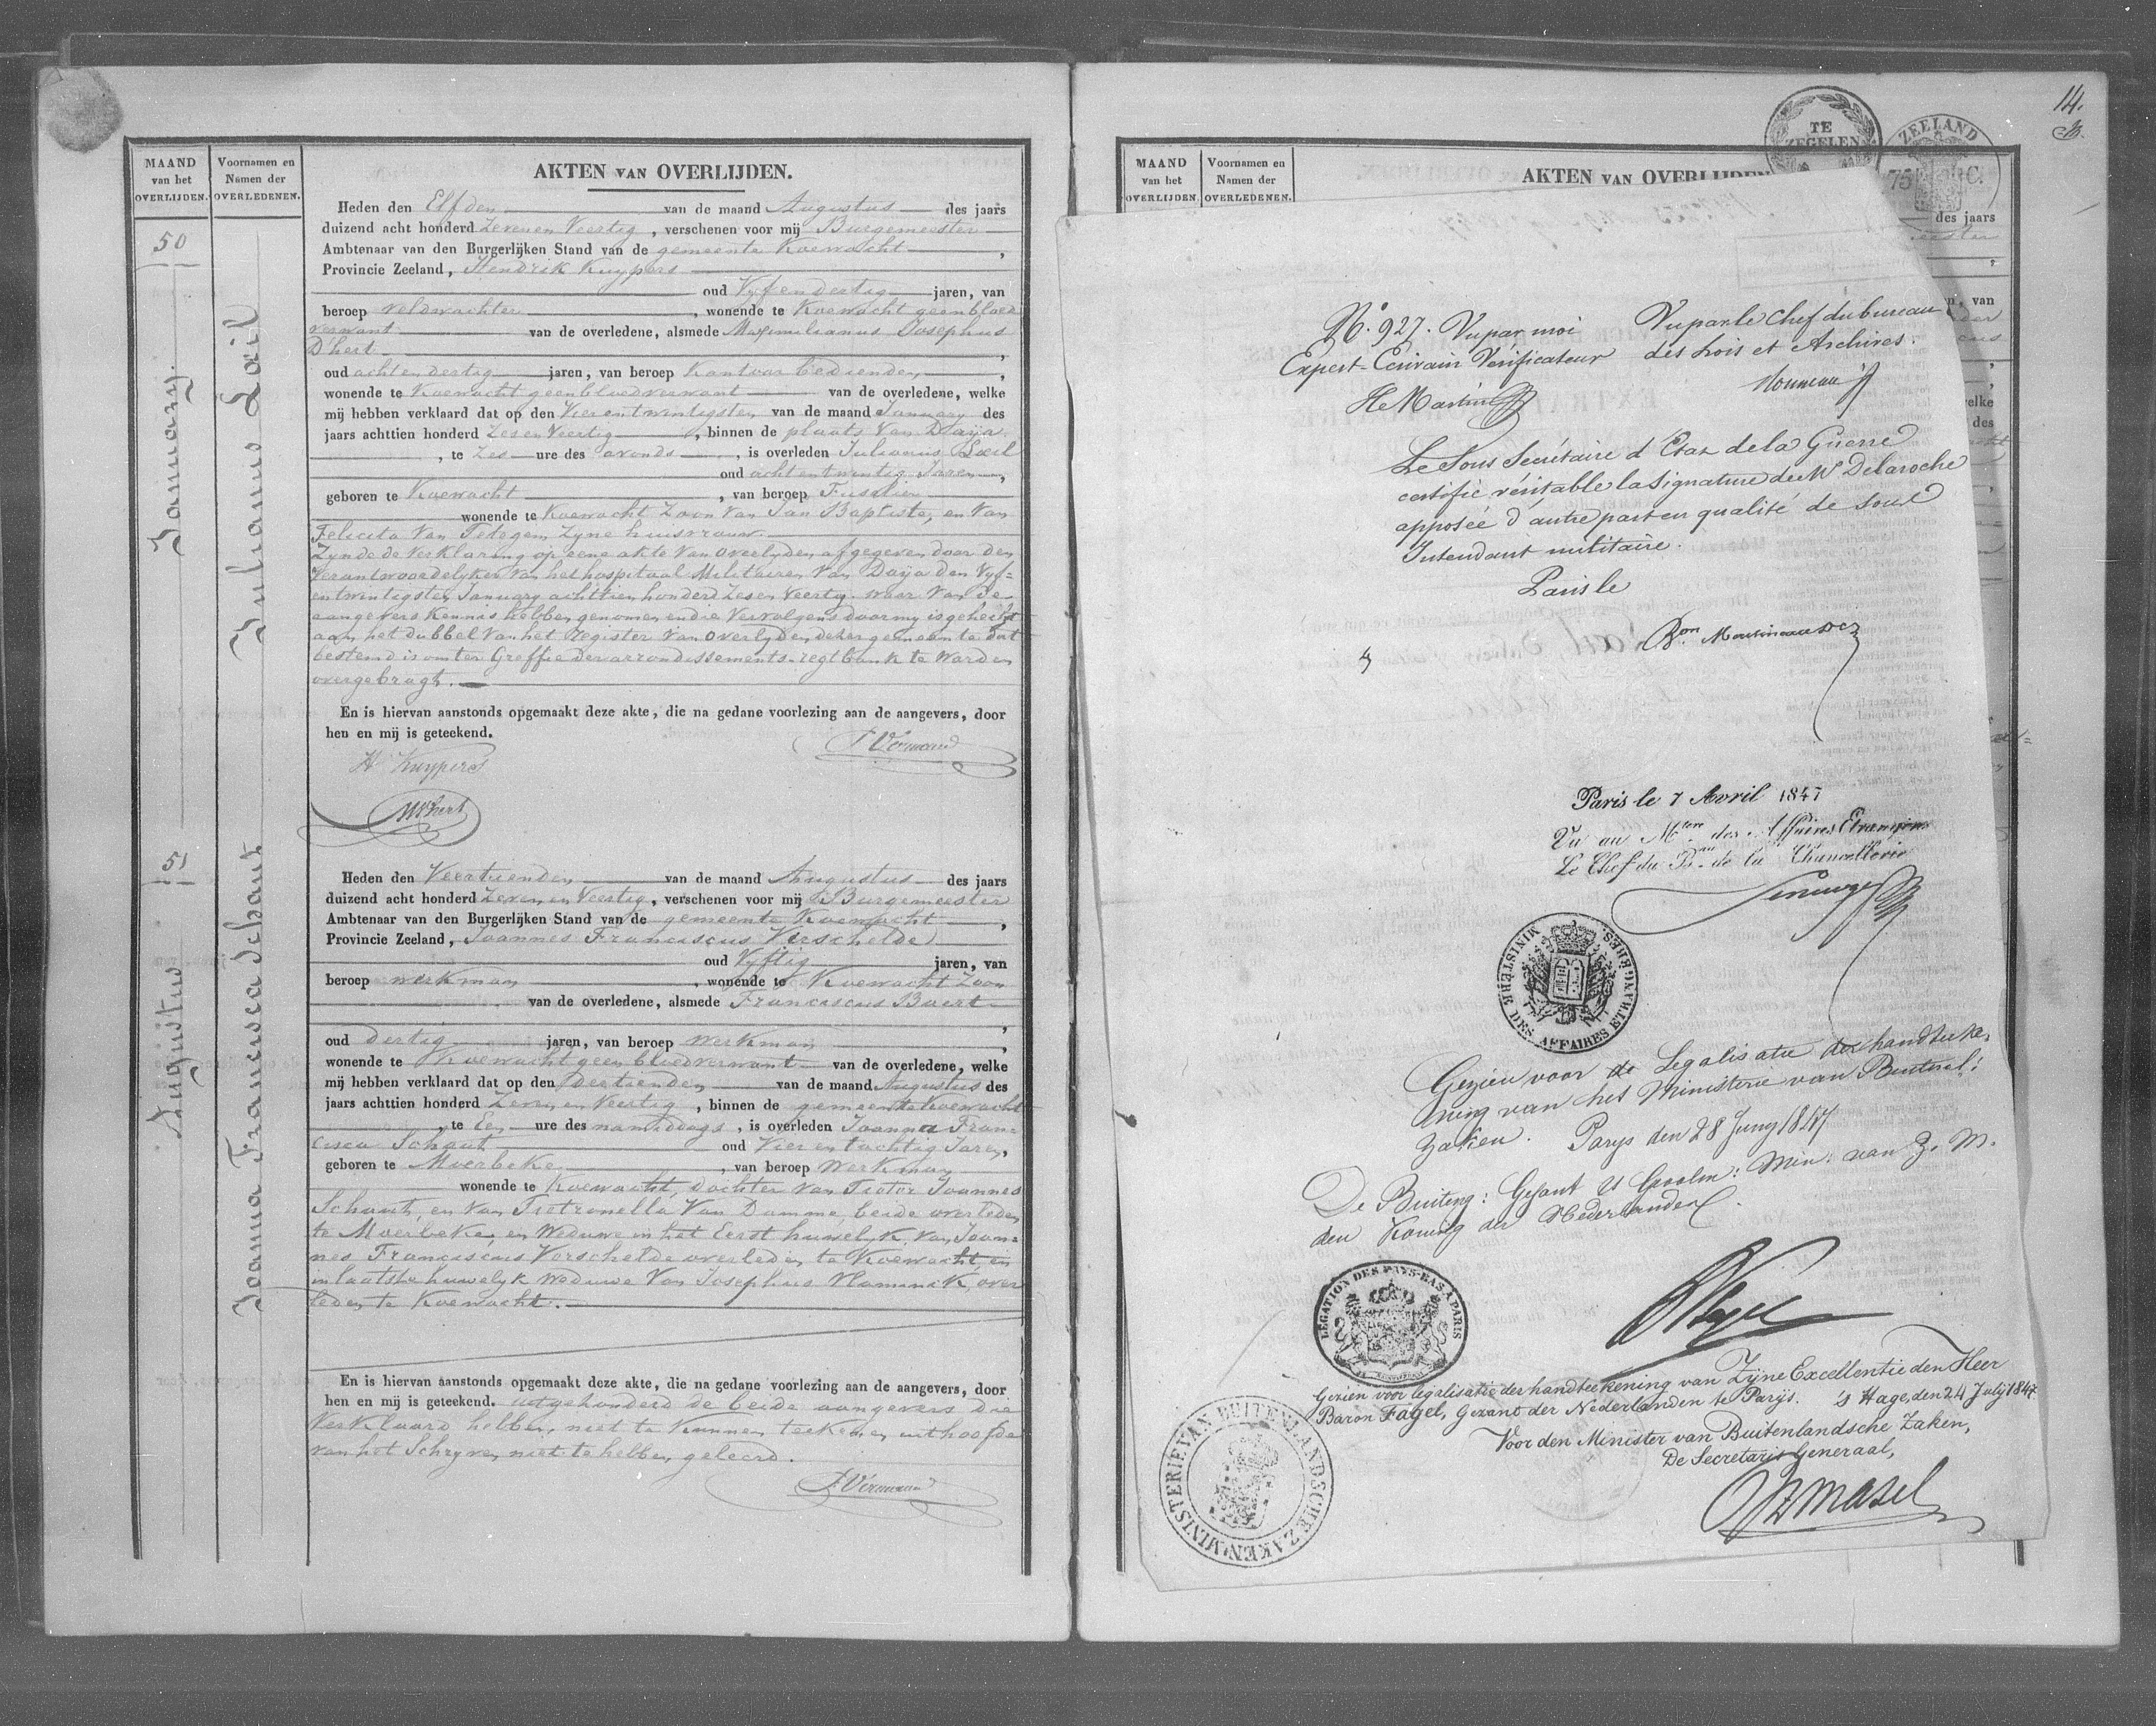 MAAND
van het
OVERLIJDEN.
Voornamen en
Namen der
OVERLEDENEN.
AKTEN VAN OVERLIJDEN.
50
January.
Julianus Lail
Heden den Elfden van de maand Augustus des jaars
duizend acht honderd Zeven en Veertig, verschenen voor mij Burgemeester
Ambtenaar van den Burgerlijken Stand van de gemeente Koewacht,
Provincie Zeeland, Hendrik Kuypers
oud Vyf en dertig jaren, van
beroep veldwachter, wonende te Koewacht geen bloed
verwant van de overledene, alsmede Maximilianus Josephus
D'hert,
oud acht en dertig jaren, van beroep Kantoor bediende,
wonende te Koewacht geen bloedverwant van de overledene, welke
mij hebben verklaard dat op den Vier en twintigsten van de maand January des
jaars achttien honderd Zes en Veertig, binnen de plaats Van Daÿa
, te Zes ure des avonds, is overleden Julianus Lail
oud acht en twintig Jaren,
geboren te Koewacht, van beroep Fuselier
wonende te Koewacht Zoon Van Jan Baptiste, en Van
Felicita Van Tetegem, Zyne huisvrouw.
Zynde de verklaring op eene akte van overlyden afgegeven door den
verantwoordelyken van het hospitaal Militaire van Daÿa den Vyf=
entwintigsten January achttien honderd Zes en Veertig. waar van de
aangevers Kennis hebben genomen en die Vervolgens door my is gehecht
aan het dubbel van het register van overlyden dezer gemeente dat
bestemd is om ter Greffie der arrondissements-regtbank te worden
overgebragt.
En is hiervan aanstonds opgemaakt deze akte, die na gedane voorlezing aan de aangevers, door
hen en mij is geteekend.
H Kuypers
MDhert
51
Augustus
Joanna Francisca Schaut
Heden den Veertienden van de maand Augustus des jaars
duizend acht honderd Zeven en Veertig, verschenen voor mij Burgemeester
Ambtenaar van den Burgerlijken Stand van de gemeente Koewacht,
Provincie Zeeland, Joannes Franciscus Verschelde
oud Vyftig jaren, van
beroep werkman, wonende te Koewacht Zoon
van de overledene, alsmede Franciscus Baert
,
oud dertig jaren, van beroep werkman,
wonende te Koewacht geen bloedverwant van de overledene, welke
mij hebben verklaard dat op den dertienden van de maand Augustus des
jaars achttien honderd Zeven en Veertig, binnen de gemeente Koewacht
, te Een ure des namiddags, is overleden Joanna Fran=
cisca Schaut oud Vier en tachtig Jaren,
geboren te Moerbeke, van beroep werkman
wonende te Koewacht, dochter van Pieter Joannes
Schaut, en van Pietronella Van Damme, beide overleden
te Moerbeke, en Weduwe in het Eerst huwelyk Van Joan=
nes Franciscus Verschelde overleden te Koewacht, en
in laatste huwelyk weduwe Van Josephus Vlaminck, over
leden te Koewacht.
En is hiervan aanstonds opgemaakt deze akte, die na gedane voorlezing aan de aangevers, door
hen en mij is geteekend. uitgehonderd de beide aangevers die
Verklaard hebben, niet te Kunnen teekenen uit hoofde
van het Schryven niet te hebben geleerd.
14.
TE
ZEGELEN
ZEELAND
75 C.
MAAND
van het
OVERLIJDEN.
Voornamen en
Namen der
OVERLEDENEN.
AKTEN VAN OVERLIJDEN
des jaars
No. 927. Vu par moi
Expert-Ecrivain Vérificateur
Vu par le Chef du bureau
des Lois et Archives.
Le Sous Secrétaire d'Etat de la Guerre
certifie véritable la signature de Mr Delaroche
apposée d'autre part en qualité de sous
Intendant militaire.
Paris le
Paris le 7 Avril 1847
Vu au Mtère des Affaires Etrangères
Le Chef du Bau de la Chancellerie
MINISTÈRE DES AFFAIRES ETRANGÈRES.
Gezien voor de Legalisatie der handteeke,
ning van het Ministerie van Buitenl:
Zaken. Parys den 28 Juny 1847
De Buiteng: Gezant & Gevolm: Min: van Z. M.
den Koning der Nederlanden.
LEGATION DES PAYS-BAS A PARIS
Gezien voor legalisatie der handteekening van Zijne Excellentie den Heer
Baron Fagel, Gezant der Nederlanden te Parijs. 's Hage, den 24 Julij 1847.
Voor den Minister van Buitenlandsche Zaken,
De Secretaris Generaal,
MINISTERIE VAN BUITENLANDSCHE ZAKEN